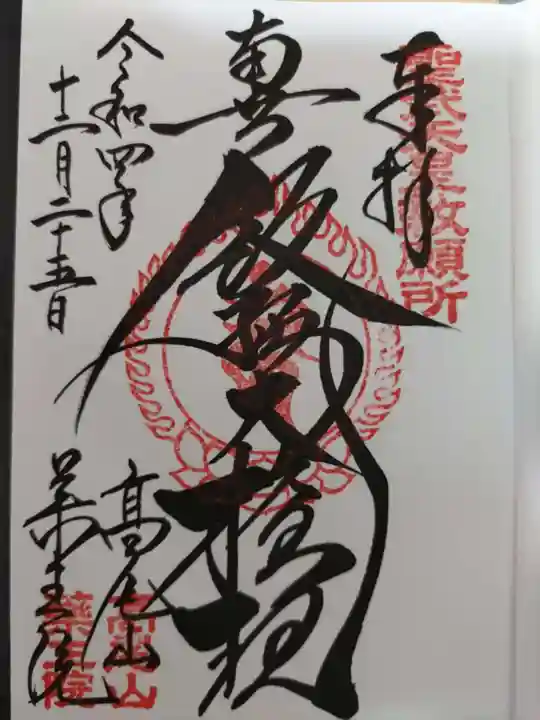 奉拝
聖武天皇勅願所
奥
飯縄大権現
高尾山
薬王院
高尾山
薬王院
令和四年
十二月二十五日